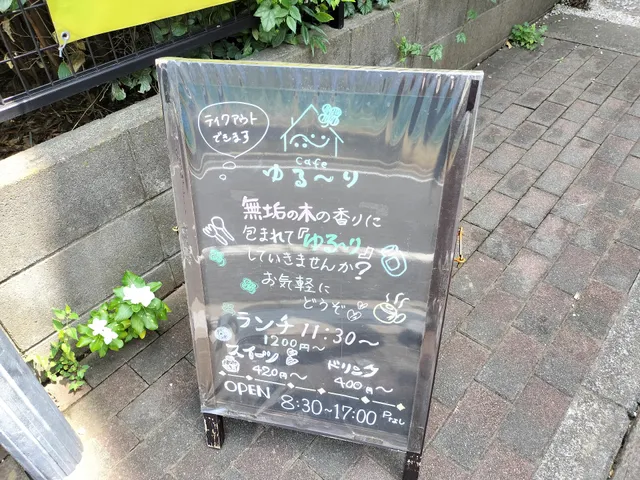 テイクアウト
できます
cafe
ゆる〜り
無垢の木の香りに
包まれて『ゆる〜り』
していきませんか?
お気軽に
どうぞ
ランチ 11:30〜
1200円〜
スイーツ ドリンク
420円〜 400円〜
OPEN 8:30~17:00 Pなし